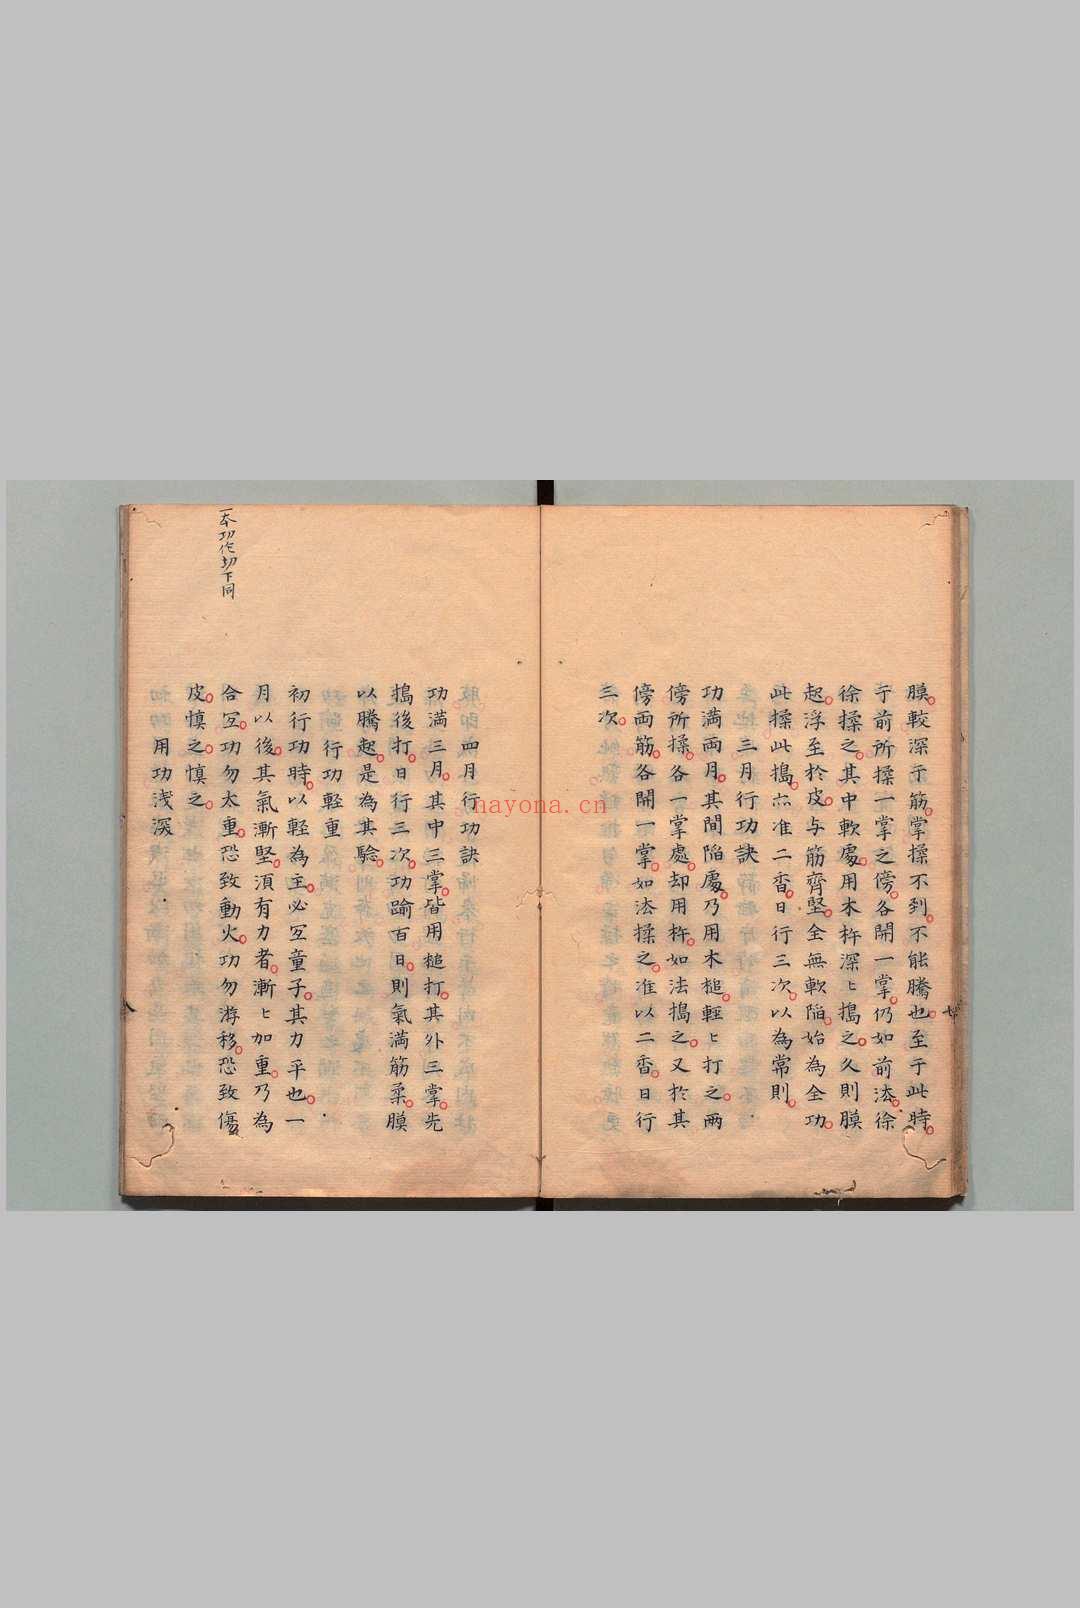 膜較深于筋。掌揉不到。不能騰也。至于此時。
于前所揉一掌之傍。各開一掌。仍如前法。徐
徐揉之。其中軟處。用木杵深〻搗之。久則膜
起。浮至於皮。与筋齊堅。全無軟陷。始為全功。
此揉此搗。亦准二香。日行三次。以為常則。
三月行功訣
功滿兩月。其間陷處。乃用木槌。輕〻打之。兩
傍所揉。各一掌處。却用杵。如法搗之。又於其
傍兩筋。各開一掌。如法揉之。准以二香。日行
三次。
四月行功訣
功滿三月。其中三掌。皆用槌打。其外三掌。先
搗後打。日行三次。功踰百日。則氣滿筋柔。膜
以騰起。是為其驗。
行功輕重
初行功時。以輕為主。必宜童子。其力平也。一
月以後。其氣漸堅。須有力者。漸〻加重。乃為
合宜。功勿太重。恐致動火。功勿游移。恐致傷
皮。慎之。慎之。
用功淺深
一本功作切下同
nayona.cn